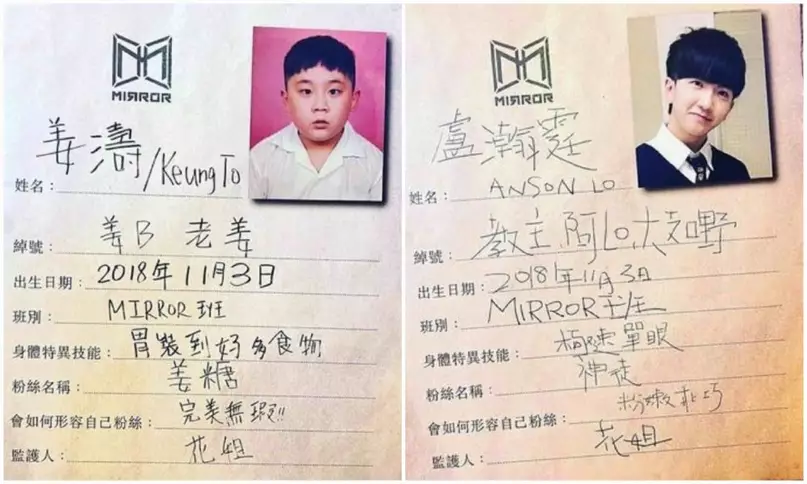 MIRROR
姜濤/KeungTo
姓名：
綽號：姜B 老姜
出生日期：2018年11月3日
班別：MIRROR班
身體特異技能：胃裝到好多食物
粉絲名稱：姜糖
會如何形容自己粉絲：完美無瑕!!
監護人：花姐
MIRROR
盧瀚霆
姓名：ANSON LO
綽號：教主,阿Lo,大支嘢
出生日期：2018年11月3日
班別：MIRROR班
身體特異技能：極速單眼
粉絲名稱：神徒
會如何形容自己粉絲：粉嫩乖巧
監護人：花姐